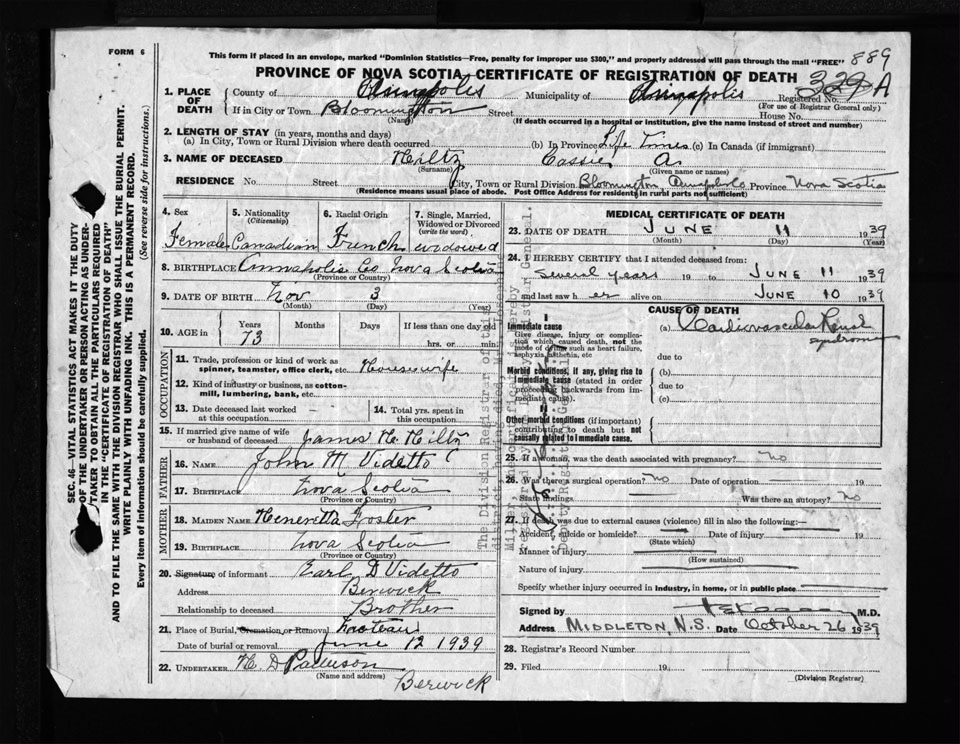 FORM 6
This form if placed in an envelope, marked "Dominion Statistics—Free, penalty for improper use $300," and properly addressed will pass through the mail "FREE"
889
PROVINCE OF NOVA SCOTIA—CERTIFICATE OF REGISTRATION OF DEATH
A
SEC. 46—VITAL STATISTICS ACT MAKES IT THE DUTY
OF THE UNDERTAKER OR PERSON ACTING AS UNDER-
TAKER TO OBTAIN ALL THE PARTICULARS REQUIRED
IN THE "CERTIFICATE OF REGISTRATION OF DEATH"
AND TO FILE THE SAME WITH THE DIVISION REGISTRAR WHO SHALL ISSUE THE BURIAL PERMIT.
WRITE PLAINLY WITH UNFADING INK. THIS IS A PERMANENT RECORD.
Every item of information should be carefully supplied.
(See reverse side for instructions.)
1. PLACE OF DEATH
County of Annapolis Municipality of Annapolis Registered No.
(For use of Registrar General only)
If in City or Town Bloomington Street House No.
(Name) (If death occurred in a hospital or institution, give the name instead of street and number)
2. LENGTH OF STAY (in years, months and days)
(a) In City, Town or Rural Division where death occurred (b) In Province Life Time (c) In Canada (if immigrant)
3. NAME OF DECEASED Hiltz Cassie A.
(Surname) (Given name or names)
RESIDENCE No. Street City, Town or Rural Division Bloomington, Annapolis Province Nova Scotia
(Residence means usual place of abode. Post Office Address for residents in rural parts not sufficient)
4. Sex
Female
5. Nationality
(Citizenship)
Canadian
6. Racial Origin
French
7. Single, Married,
Widowed or Divorced
(write the word)
widowed
8. BIRTHPLACE Annapolis Co Nova Scotia
(Province or Country)
9. DATE OF BIRTH Nov 3
(Month) (Day) (Year)
10. AGE in
Years Months Days If less than one day old
73 hrs. or min.
OCCUPATION
11. Trade, profession or kind of work as
spinner, teamster, office clerk, etc. Housewife
12. Kind of industry or business, as cotton-
mill, lumbering, bank, etc.
13. Date deceased last worked
at this occupation
14. Total yrs. spent in
this occupation
15. If married give name of wife
or husband of deceased James H. Hiltz
FATHER
16. NAME John M Videtto
17. BIRTHPLACE Nova Scotia
(Province or Country)
MOTHER
18. MAIDEN NAME Heneretta Foster
19. BIRTHPLACE Nova Scotia
(Province or Country)
20. Signature of informant Earl D Videtto
Address Berwick
Relationship to deceased Brother
21. Place of Burial, Cremation or Removal
Date of burial or removal June 12 1939
22. UNDERTAKER H. D
(Name and address) Berwick
MEDICAL CERTIFICATE OF DEATH
23. DATE OF DEATH JUNE 11 1939
(Month) (Day) (Year)
24. I HEREBY CERTIFY that I attended deceased from:
Several years 19 to JUNE 11 1939
and last saw her alive on JUNE 10 1939
CAUSE OF DEATH
Immediate cause
Give disease, injury or complica-
tion which caused death, not the
mode of dying such as heart failure,
asphyxia, asthenia, etc
(a) Cardiovascular Renal
syndrome
due to
Morbid conditions, if any, giving rise to
immediate cause (stated in order
proceeding backwards from im-
mediate cause).
(b)
due to
(c)
Other morbid conditions (if important)
contributing to death but not
causally related to immediate cause.
25. If a woman, was the death associated with pregnancy? No
26. Was there a surgical operation? No Date of operation 19
State findings Was there an autopsy? No
27. If death was due to external causes (violence) fill in also the following:—
Accident, suicide or homicide? Date of injury 19
(State which)
Manner of injury
(How sustained)
Nature of injury
Specify whether injury occurred in industry, in home, or in public place
Signed by M.D.
Address MIDDLETON, N.S. Date October 26 1939
28. Registrar's Record Number
29. Filed 19
(Division Registrar)